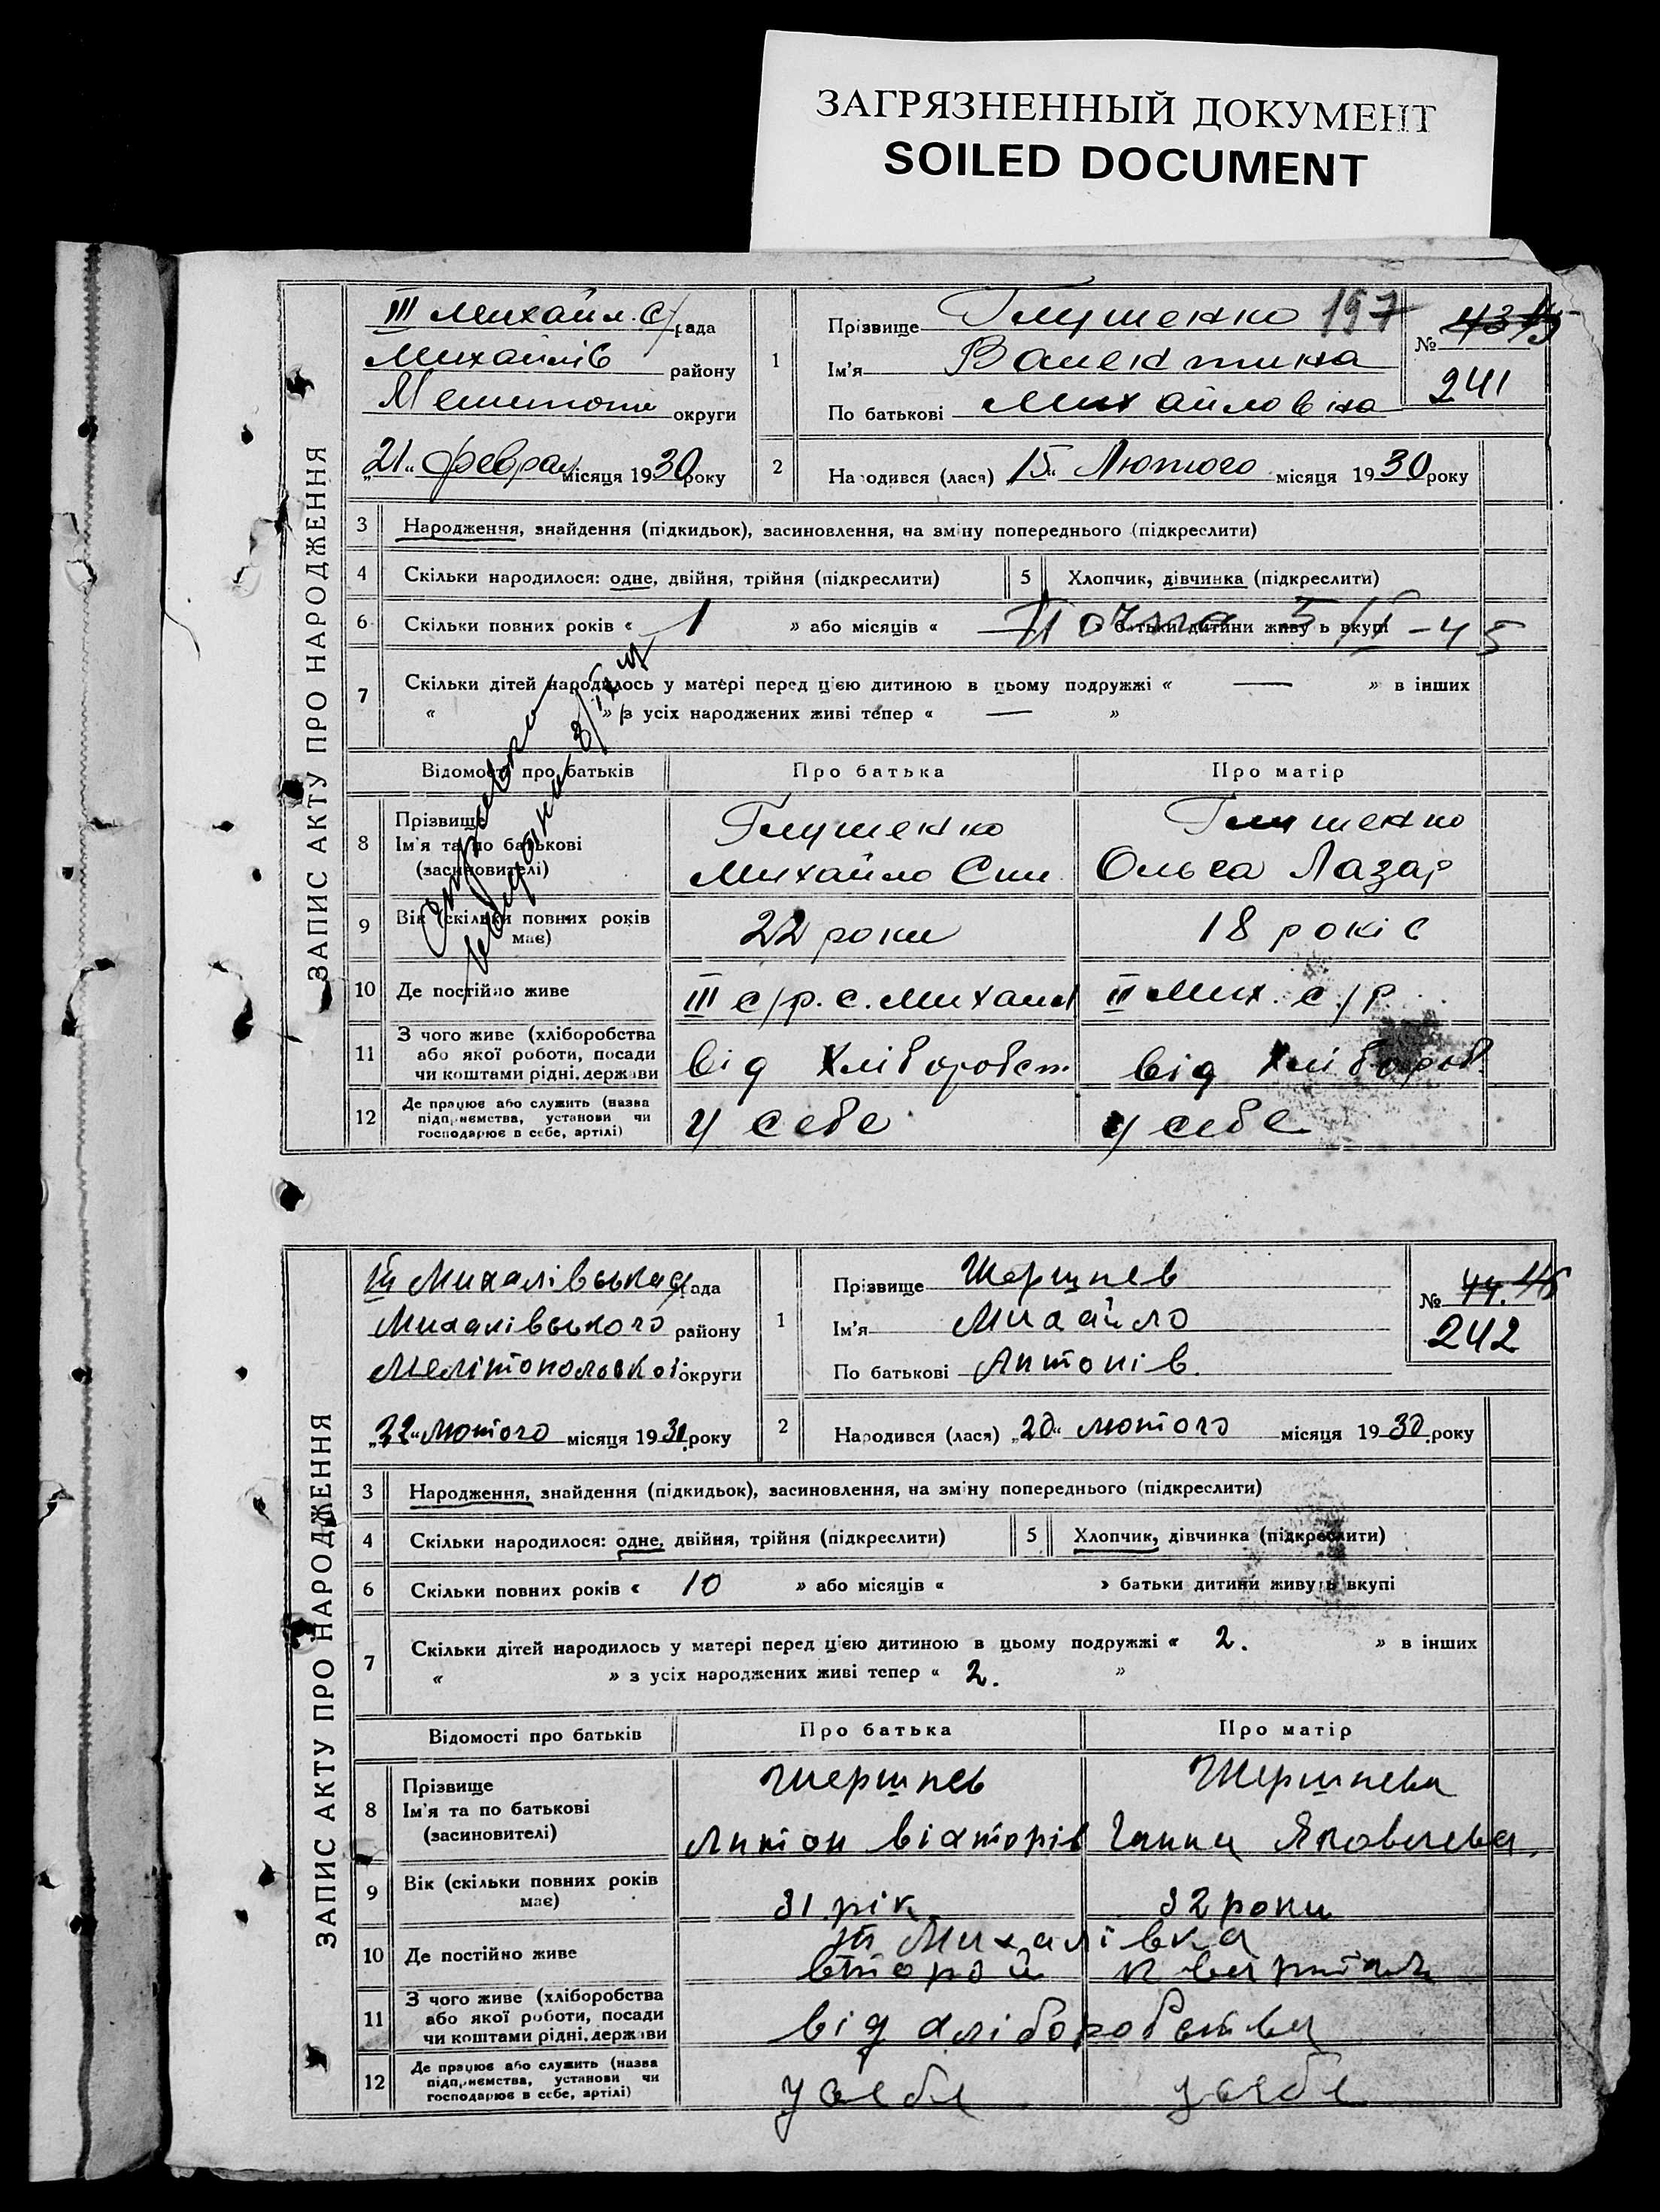 ЗАГРЯЗНЕННЫЙ ДОКУМЕНТ
SOILED DOCUMENT
ЗАПИС АКТУ ПРО НАРОДЖЕННЯ
III Михайл. с/рада
Михайлів району
Мелитопи округи
„21“ феврал місяця 1930 року
1 Прізвище Глушенко 197
Ім'я Валентина
По батькові Михайловіна
№ 43 45
241
2 Народився (лася) „15“ Лютого місяця 1930 року
3 Народження, знайдення (підкидьок), засиновлення, на зміну попереднього (підкреслити)
4 Скільки народилося: одне, двійня, трійня (підкреслити) 5 Хлопчик, дівчинка (підкреслити)
6 Скільки повних років « 1 » або місяців « — » батьки дитини живуть вкупі
7 Скільки дітей народилось у матері перед цією дитиною в цьому подружжі « — » в інших
« » з усіх народжених живі тепер « — »
Відомості про батьків Про батька Про матір
8 Прізвище Ім'я та по батькові (засиновителі)
Глушенко Глушенко
Михайло Сим Ольга Лазар
9 Вік (скільки повних років має) 22 роки 18 років
10 Де постійно живе III с/р. с. Михайл II Мих. с/р.
11 З чого живе (хліборобства або якої роботи, посади чи коштами рідні, держави від Хлібороbст. від Хлібороб.
12 Де працює або служить (назва підприємства, установи чи господарює в себе, артілі) у себе у себе
ЗАПИС АКТУ ПРО НАРОДЖЕННЯ
III Михалівська с/рада
Михалівського району
Мелітопольскої округи
„22“ лютого місяця 1930 року
1 Прізвище Шершнев
Ім'я Михайло
По батькові Антонів.
№ 44. 46
242
2 Народився (лася) „20“ лютого місяця 1930 року
3 Народження, знайдення (підкидьок), засиновлення, на зміну попереднього (підкреслити)
4 Скільки народилося: одне, двійня, трійня (підкреслити) 5 Хлопчик, дівчинка (підкреслити)
6 Скільки повних років « 10 » або місяців « » батьки дитини живуть вкупі
7 Скільки дітей народилось у матері перед цією дитиною в цьому подружжі « 2. » в інших
« » з усіх народжених живі тепер « 2. »
Відомості про батьків Про батька Про матір
8 Прізвище Ім'я та по батькові (засиновителі)
Шершнев Шершнева
Антон Вікторів Ганна Яковлева.
9 Вік (скільки повних років має) 31 рік 32 роки
10 Де постійно живе III Михалівка
второй квартал
11 З чого живе (хліборобства або якої роботи, посади чи коштами рідні, держави від хліборобства
12 Де працює або служить (назва підприємства, установи чи господарює в себе, артілі) у себе у себе